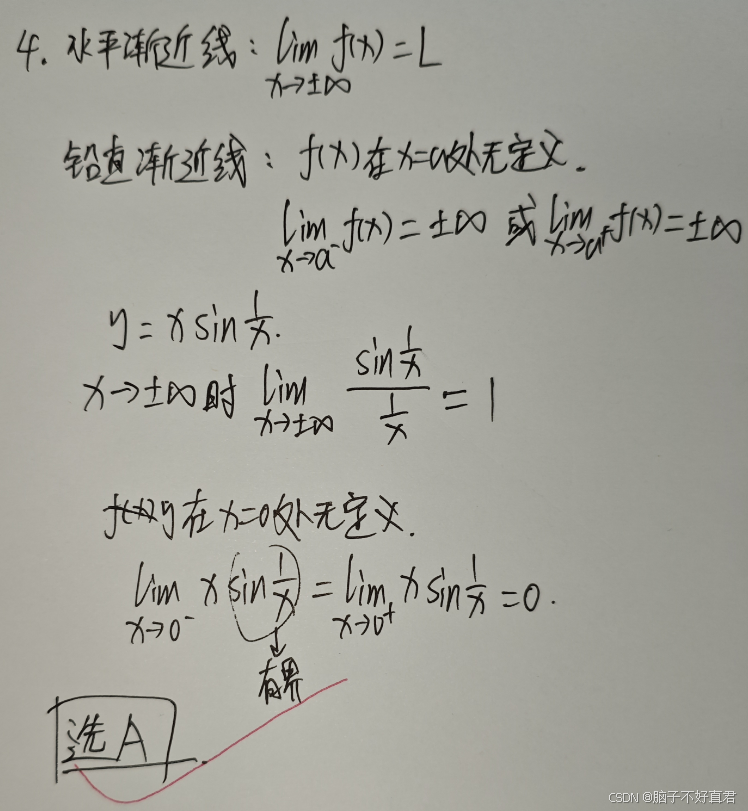 4. 水平渐近线: lim x→±∞ f(x) = L
铅直渐近线: f(x)在x=a处无定义.
lim x→a⁻ f(x) = ±∞ 或 lim x→a⁺ f(x) = ±∞
y = x sin 1/x.
x→±∞时 lim x→±∞ (sin 1/x)/(1/x) = 1
f(x) y在x=0处无定义.
lim x→0⁻ x sin 1/x = lim x→0⁺ x sin 1/x = 0.
有界
选A.
CSDN @脑子不好真君